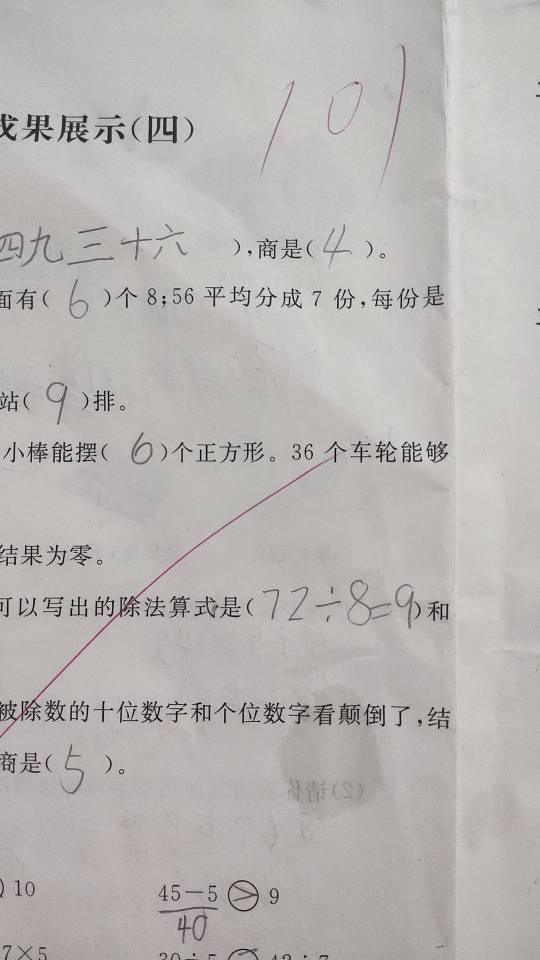 101
成果展示(四)
四九三十六 ),商是( 4 )。
面有( 6 )个8;56平均分成7份,每份是
站( 9 )排。
小棒能摆( 6 )个正方形。36个车轮能够
结果为零。
可以写出的除法算式是( 72÷8=9 )和
被除数的十位数字和个位数字看颠倒了,结
商是( 5 )。
) 10 45-5 > 9
40
7×5 30÷5